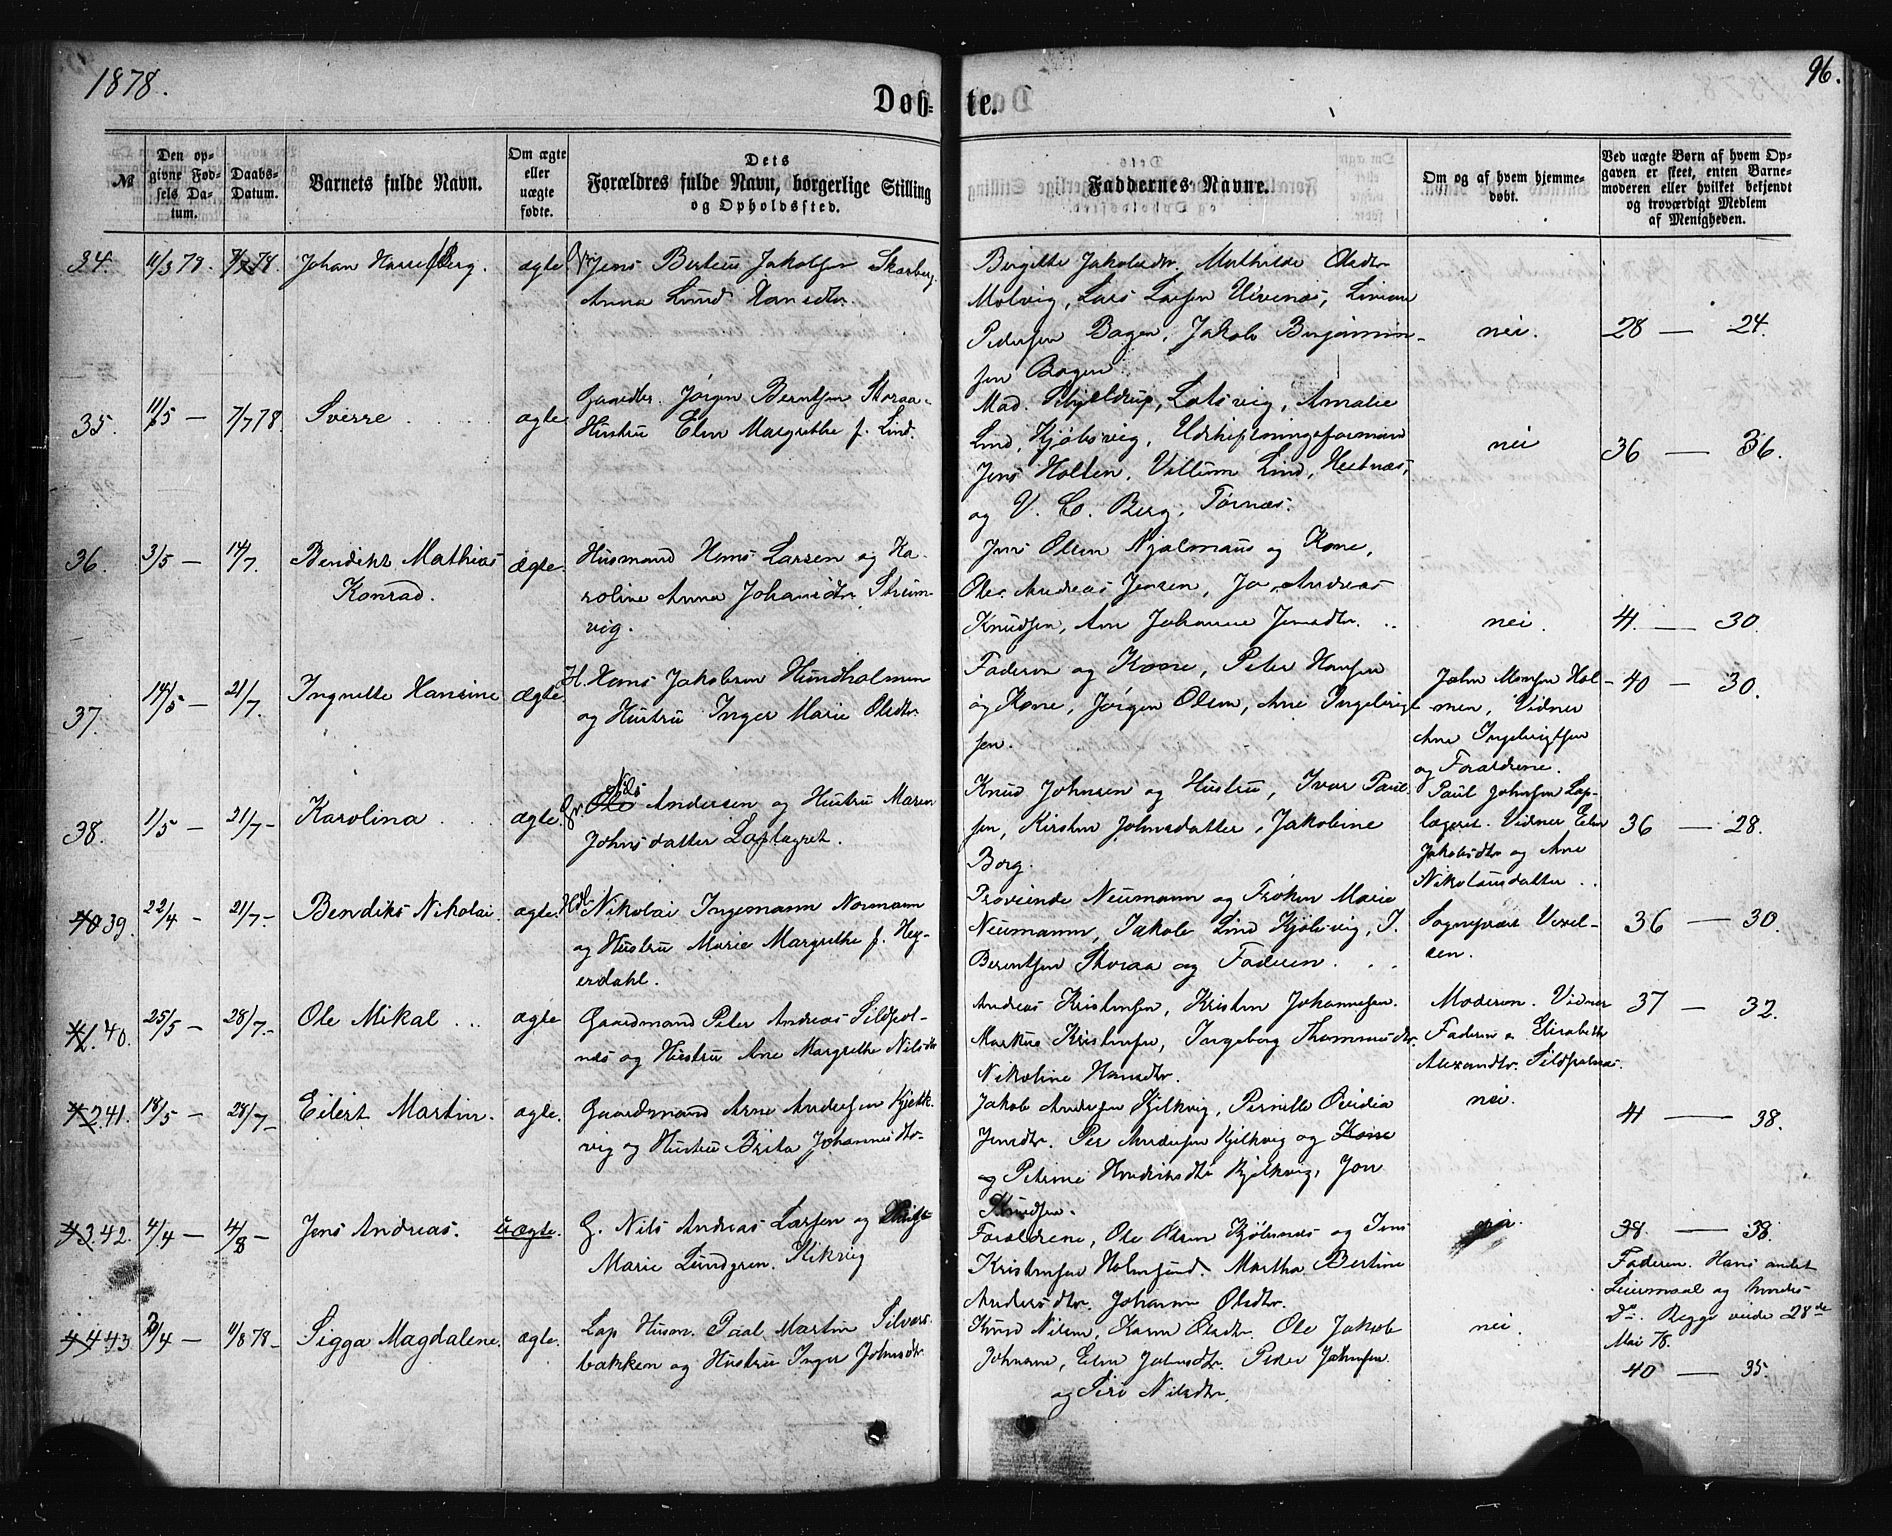 1878.
96.
Døb-te.
№
Den opgivne Fødsels Datum.
Daabs-Datum.
Barnets fulde Navn.
Om ægte eller uægte fødte.
Dets Forældres fulde Navn, borgerlige Stilling og Opholdssted.
Faddernes Navne.
Om og af hvem hjemmedøbt.
Ved uægte Børn af hvem Opgaven er skeet, enten Barnemoderen eller hvilket bekjendt og troværdigt Medlem af Menigheden.
34. 11/3 78. 7/7 78. Johan Berg. ægte
Jens Berteus Jakobsen Skarberg.
Anna Lund Hansdtr.
Birgitte Jakobsdtr. Mathilde Olsdtr
Molvig, Lars Larsen
Pedersen Bogen, Jakob Benjamin-
sen Bogen.
nei.
28 — 24.
35. 11/5 — 7/7 78. Sverre . . . ægte
Gaardbr. Jørgen Berntsen Storaa.
Hustru Elen Margrethe f. Lind.
Mad. Schjeldrup, Lotsvig, Amalie
Lind, Kjøbsvig, Udskiftningsformand
Jens Holten, Villum Lind,
og V. C. Berg, Tørnæs.
nei
36 — 36.
36. 3/5 — 14/7. Bendikt Mathias
Konrad.
ægte.
Husmand Hans Larsen og Ka-
roline Anna Johansdtr.
vig.
Jens Olsen og Kone,
Ole Andreas Jensen, Jo Andreas
Knudsen, Ane Johanne Jensdtr. ..
nei.
41. — 30.
37. 14/5 — 21/7. Ingnette Hansine
ægte.
H. Hans Jakobsen Hundholmen
og Hustru Inger Marie Olsdtr.
Faderen og Kone, Peter Hansen
og Kone, Jørgen Olsen, Arne Ingebrigt
sen.
John Monsen Hol-
men, Vidner
Arne Ingebrigtsen
og Forældrene.
40 — 30.
38. 1/5 — 21/7 — Karolina . . . ægte
Nils
Ole Andersen og Hustru Maren
Johnsdatter Laplægret.
Knud Johnsen og Hustru, Ivar Paul-
sen, Kirsten Johnsdatter, Jakobine
Borg.
Paul Johnsen Lap-
lægret. Vidner Elen
Jakobsdtr og Ane
Nikolausdatter ..
36 — 28.
40 39. 22/4 — 21/7 — Bendiks Nikolai. ægte.
Nikolai Ingemann Normann
og Hustru Marie Margrethe f. Hey-
erdahl.
Provinde Neumann og Frøken Marie
Neumann, Jakob Lind Kjøbsvig, J.
Berentsen Storaa og Faderen. . .
Sognepræst Vexel-
sen.
36 — 30.
40. 25/5 — 28/7 — Ole Mikal ... ægte
Gaardmand Peter Andreas Sildpol-
næs og Hustru Ane Margrethe Nilsdtr
Andreas Kristensen, Kristen Johannesen.
Markus Kristensen, Ingeborg Thommesdtr.
Nikoline Hansdtr.
Moderen. Vidner
Faderen & Elisabeth
Alexandtr. Sildpolnæs.
37 — 32.
42 41. 18/5 — 28/7 — Eilert Martin. ægte.
Gaardmand Arne Andersen Kjelk-
vig og Hustru Brita Johannesdtr.
Jakob Andersen Kjelkvig, Pernille Ovidia
Jensdtr. Per Andersen Kjelkvig og Kone
og Petrine Hendriksdtr Kjelkvig, Jon
Knudsen.
nei.
41 — 38.
43 42. 4/4 — 4/8 — Jens Andreas. uægte.
G. Nils Andreas Larsen og
Marie Lundgren.
Forældrene, Ole Olsen Kjøbsnæs og Jens
Kristensen Holmsund. Martha Bertine
Andersdtr. Johanna Olsdtr.
nei.
38. — 38.
Faderen. Hans andet
Leiermaal og hendes
Do. Begge viede 28de
Mai 78.
44 43 — 11/8 78 — Sigga Magdalene. ægte.
Lap Husm. Paal Martin Silvers
bakken og Hustru Inger Johnsdtr.
Knud Nilsen, Karen Olsdtr. Ole Jakob
Johnsen, Elen Johnsdtr. Peder Johnsen
og Siri Nilsdtr.
nei.
40 — 35.